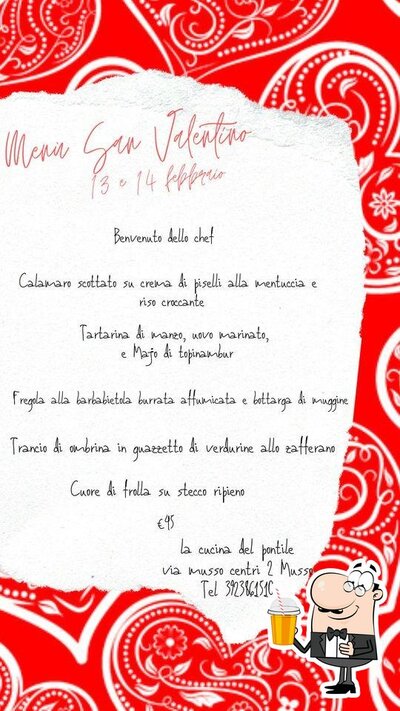 Menù San Valentino
13 e 14 febbraio
Benvenuto dello chef
Calamaro scottato su crema di piselli alla mentuccia e
riso croccante
Tartarina di manzo, uovo marinato,
e Majo di topinambur
Fregola alla barbabietola burrata affumicata e bottarga di muggine
Trancio di ombrina in guazzetto di verdurine allo zafferano
Cuore di frolla su stecco ripieno
la cucina del pontile
via musso centri 2 Musso
Tel